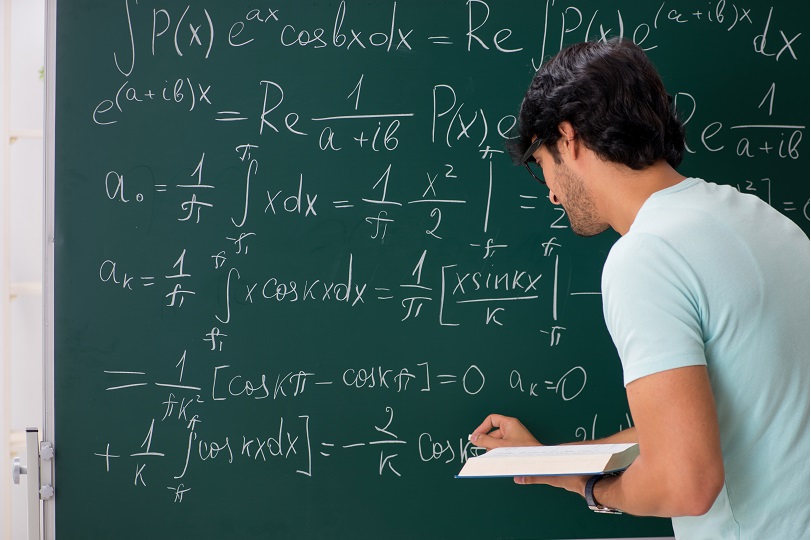 ∫ P(x) e^{ax} cosbxdx = Re ∫ P(x) e^{(a+ib)x} dx
e^{(a+ib)x} = Re 1/(a+ib) P(x) e Re 1/(a+ib)
a₀ = 1/π ∫_{-π}^{π} xdx = 1/π x²/2 |_{-π}^{π} =
a_k = 1/π ∫_{π}^{π} x coskxdx = 1/π [ xsinkx/k |_{-π}^{π} −
= 1/(πk²) [coskπ − coskπ] = 0 a_k = 0
+ 1/k ∫_{-π}^{π} cos kxdx ] = − 2/k cosk